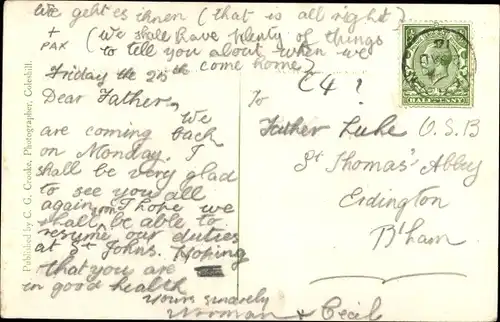 Wie geht es ihnen (that is all right)
+ (We shall have plenty of things
PAX to tell you about when we
come home)
Friday the 25th
Dear Father,
We
are coming back
on Monday. I
shall be very glad
to see you all
again, I hope we
shall be able to
resume our duties
at St Johns. Hoping
that you are
in good health
yours sincerely
Norman & Cecil
C4?
To
Father Luke O.S.B
St Thomas' Abbey
Erdington
B'ham
HALFPENNY
Published by C. G. Crooke, Photographer, Coleshill.